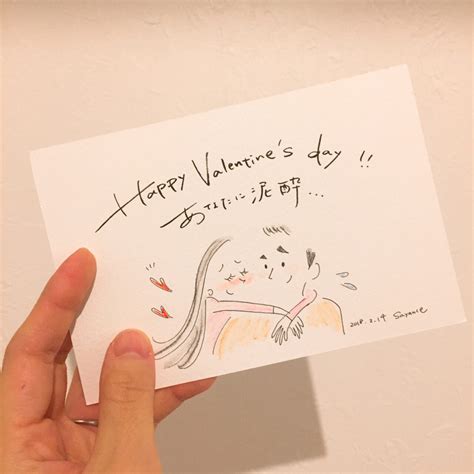 Happy Valentine's day !!
あなたに泥酔...
2018.2.14